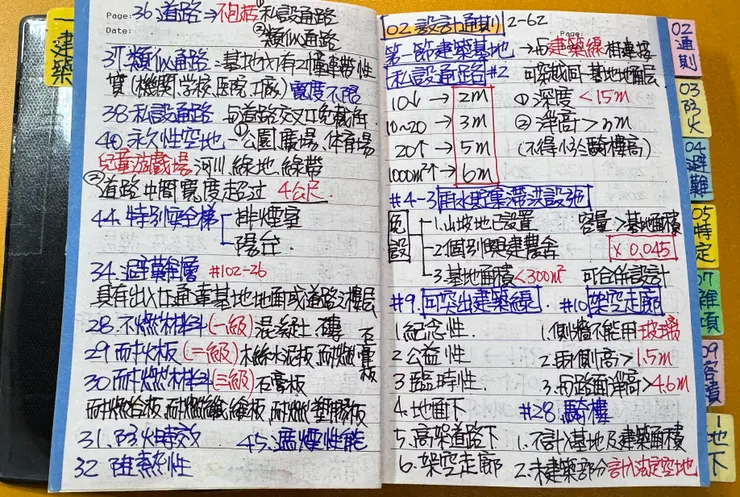 一建築
Page:
Date:
36 道路→不包括 ①私設通路
②類似通路
37 類似通路=基地內有2幢連帶性
質(機關.學校.醫院.工廠)寬度不限
38 私設通路 與道路交叉口免截角
40 永久性空地-①公園.廣場.体育場
兒童遊戲場 河川.綠地.綠帶
②道路 中間寬度超过 4公尺
44. 特別安全梯 排煙室
陽台
34. 避難層 #102-26
具有出入口通達基地地面或道路之樓层
28. 不燃材料(一級)混凝土 磚 石
29 耐火板(二級)木絲水泥板,耐燃石膏板
30 耐燃材料(三級)石膏板
耐燃合板,耐燃纖維板,耐燃塑膠板
31. 防火時效 45. 遮煙性能
32 阻熱性
02. 設計通則 2-62
Page:
第一節建築基地→与建築線相連接
私設通路#2 可穿越同一基地地面层
10↓→2m ①深度<15m
10~20→3m ②淨高>3m
20↑→5m (不得小於騎樓高)
1000m²↑→6m
#4-3雨水貯集滯洪設施
免設 1.山坡地已設置 容量>基地面積
2.個別興建農舍 ×0.045
3.基地面積<300m² 可合併設計
#9.可突出建築線 #10架空走廊
1.紀念性 1.側牆不能用玻璃
2 公益性 2.兩側高>1.5m
3 臨時性 3.与路面淨高>4.6m
4.地面下 #28.騎樓
5.高架道路下 1.不計入基地及建築面積
6.架空走廊 2.未建築部分計入法定空地
02通則
03防火
04避難
05特定
07
09容積
地下